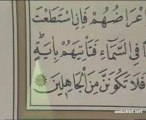 عْرَاضُهُمْ فَإِنِ اسْتَطَعْتَ
فِي السَّمَاءِ فَتَأْتِيَهُمْ بِآيَةٍ
فَلَا تَكُونَنَّ مِنَ الْجَاهِلِينَ